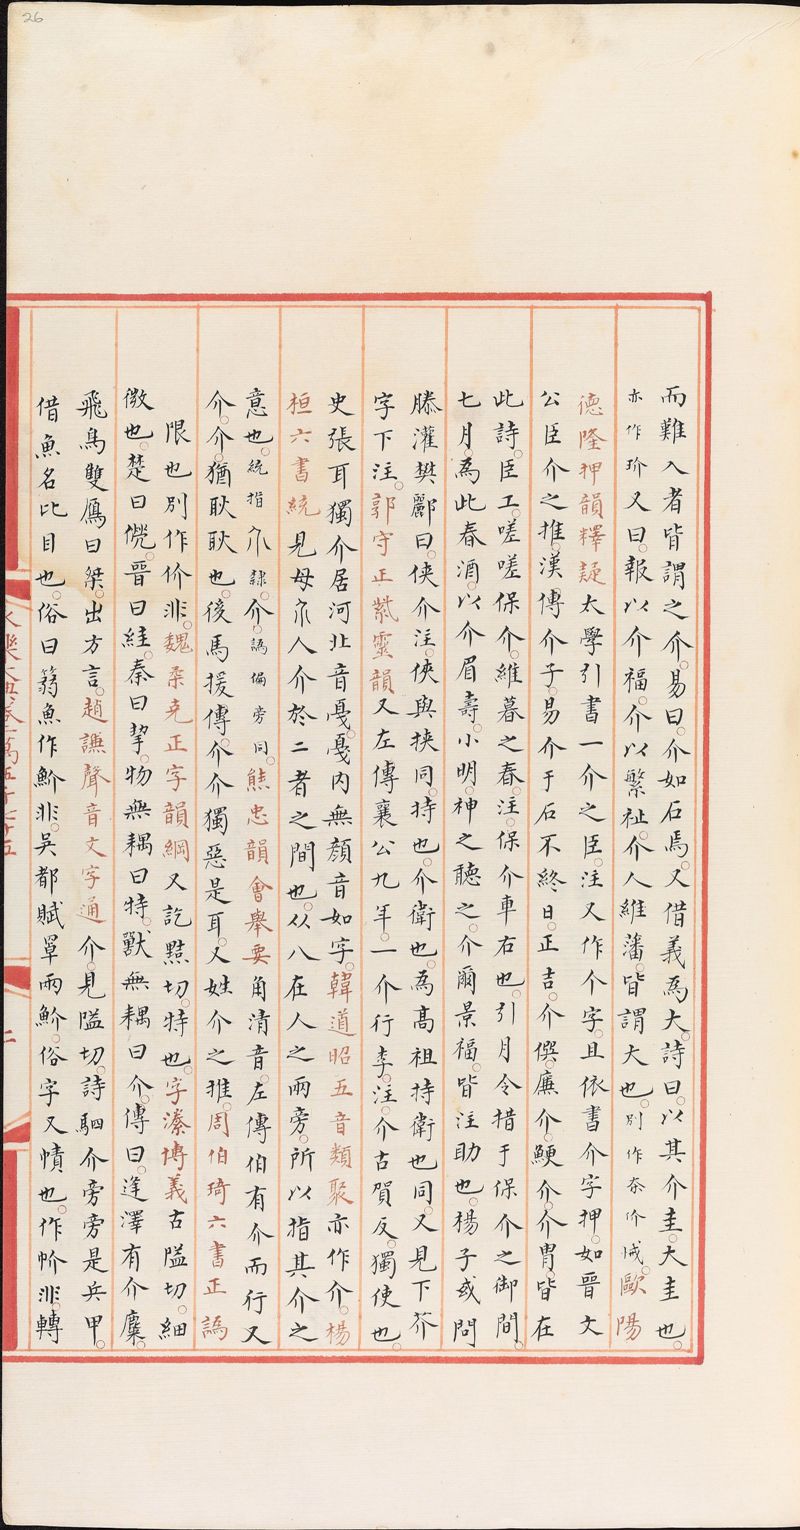 26
而難入者皆謂之介。易曰。介如石焉。又借義爲大。詩曰。以其介圭。大圭也。
亦作玠又曰。報以介福。介以繁祉。介人維藩。皆謂大也。別作夰价悈。歐陽
德隆押韻釋疑太學引書一介之臣。注又作个字。且依書介字押。如晉文
公臣介之推。漢傳介子。易介于石不終日。正吉。介僎。廉介。鯁介。介冑。皆在
此詩。臣工。嗟嗟保介。維暮之春。注。保介車右也。引月令措于保介之御間。
七月。爲此春酒。以介眉壽。小明。神之聽之。介爾景福。皆注助也。楊子或問
滕灌樊酈曰。俠介注。俠與挾同。持也。介衛也。爲高祖持衛也同。又見下芥
字下注。郭守正紫雲韻又左傳襄公九年。一介行李。注。介古賀反。獨使也。
史張耳獨介居河北音戛。戛內無顏音如字。韓道昭五音類聚亦作介。楊
桓六書統見母介人介於二者之間也。从八在人之兩旁。所以指其介之
意也。統指介隸。介。譌偏旁同。熊忠韻會舉要角清音。左傳伯有介而行又
介。介猶耿耿也。後馬援傳。介介獨惡是耳。又姓介之推。周伯琦六書正譌
限也別作价非。魏柔克正字韻綱又訖黠切。特也。字潫博義古隘切。細
微也。楚曰儝。晉曰絓。秦曰挈。物無耦曰特。獸無耦曰介。傳曰。逢澤有介麋。
飛鳥雙鴈曰椉。出方言。趙謙聲音文字通介。見隘切。詩駟介旁旁是兵甲。
借魚名比目也。俗曰篛魚作魪非。吳都賦罩兩魪。俗字又幘也。作帉非。轉
永樂大典卷一萬五千七十五